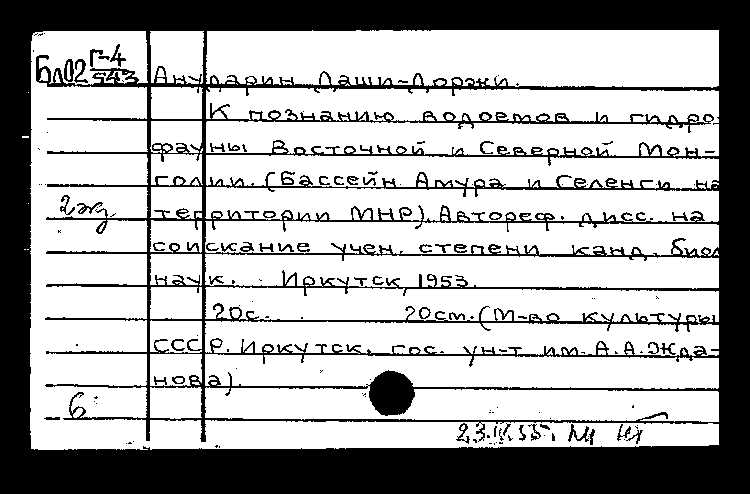 Бл02 Г-4/543
Анударин Даши-Доржи.
К познанию водоемов и гидро-
фауны Восточной и Северной Мон-
голии. (Бассейн Амура и Селенги на
2 экз территории МНР). Автореф. дисс. на
соискание учен. степени канд. биол
наук. Иркутск, 1953.
20с. 20см. (М-во культуры
СССР. Иркутск. гос. ун-т им. А.А. Жда-
нова).
6